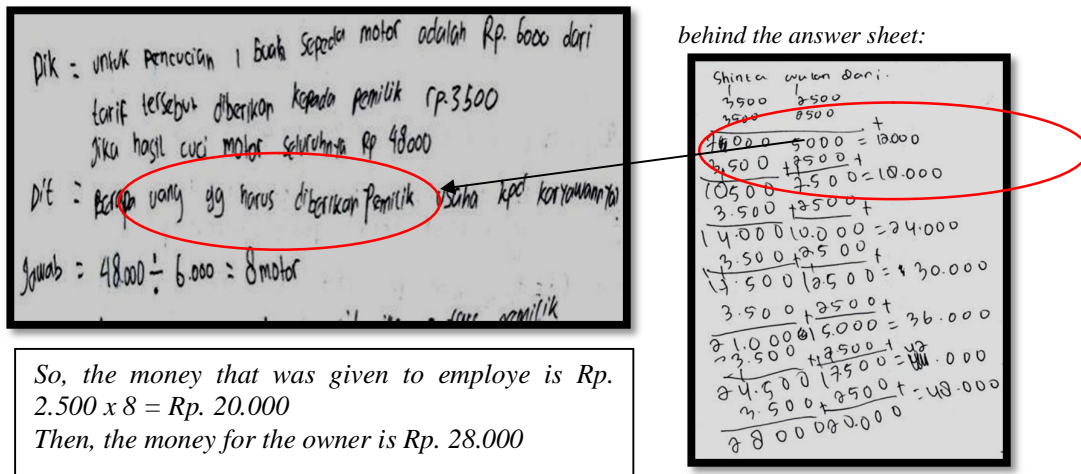 Dik = untuk pencucian 1 buah sepeda motor adalah Rp. 6000 dari
tarif tersebut diberikan kepada pemilik rp.3500
Jika hasil cuci motor seluruhnya Rp 48000
Dit = Berapa uang yg harus diberikan Pemilik usaha kpd karyawannya
Jawab = 48.000 ÷ 6.000 = 8 motor
pemilik
So, the money that was given to employe is Rp.
2.500 x 8 = Rp. 20.000
Then, the money for the owner is Rp. 28.000
behind the answer sheet:
Shinta wulan dari.
3500 2500
3500 2500
+
7000 5000 = 12.000
3.500 + 2500 +
10500 7500 = 18.000
3.500 + 2500 +
14.000 10.000 = 24.000
3.500 + 2500
17.500 12.500 = 30.000
3.500 + 2500 +
21.000 15.000 = 36.000
3.500 + 2500 +
24.500 17500 = 42.000
3.500 + 2500 +
28000 20.000 = 48.000